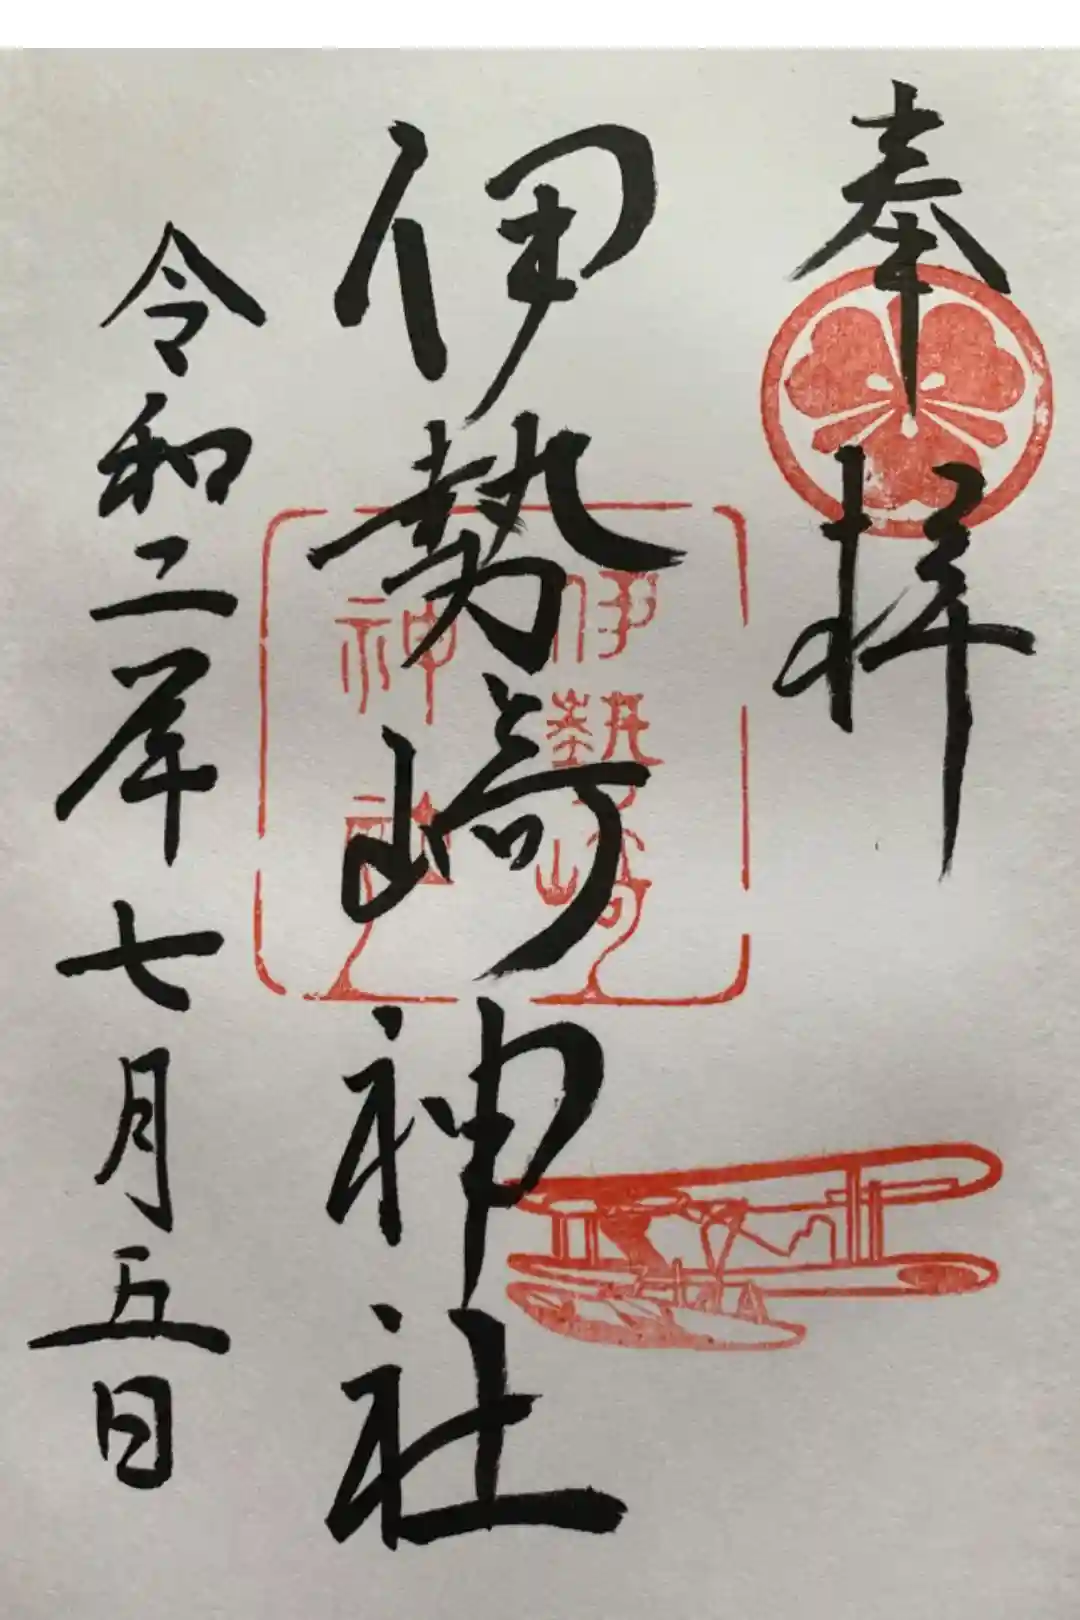 奉拝
伊勢崎神社
伊勢崎
神社
令和二年七月五日